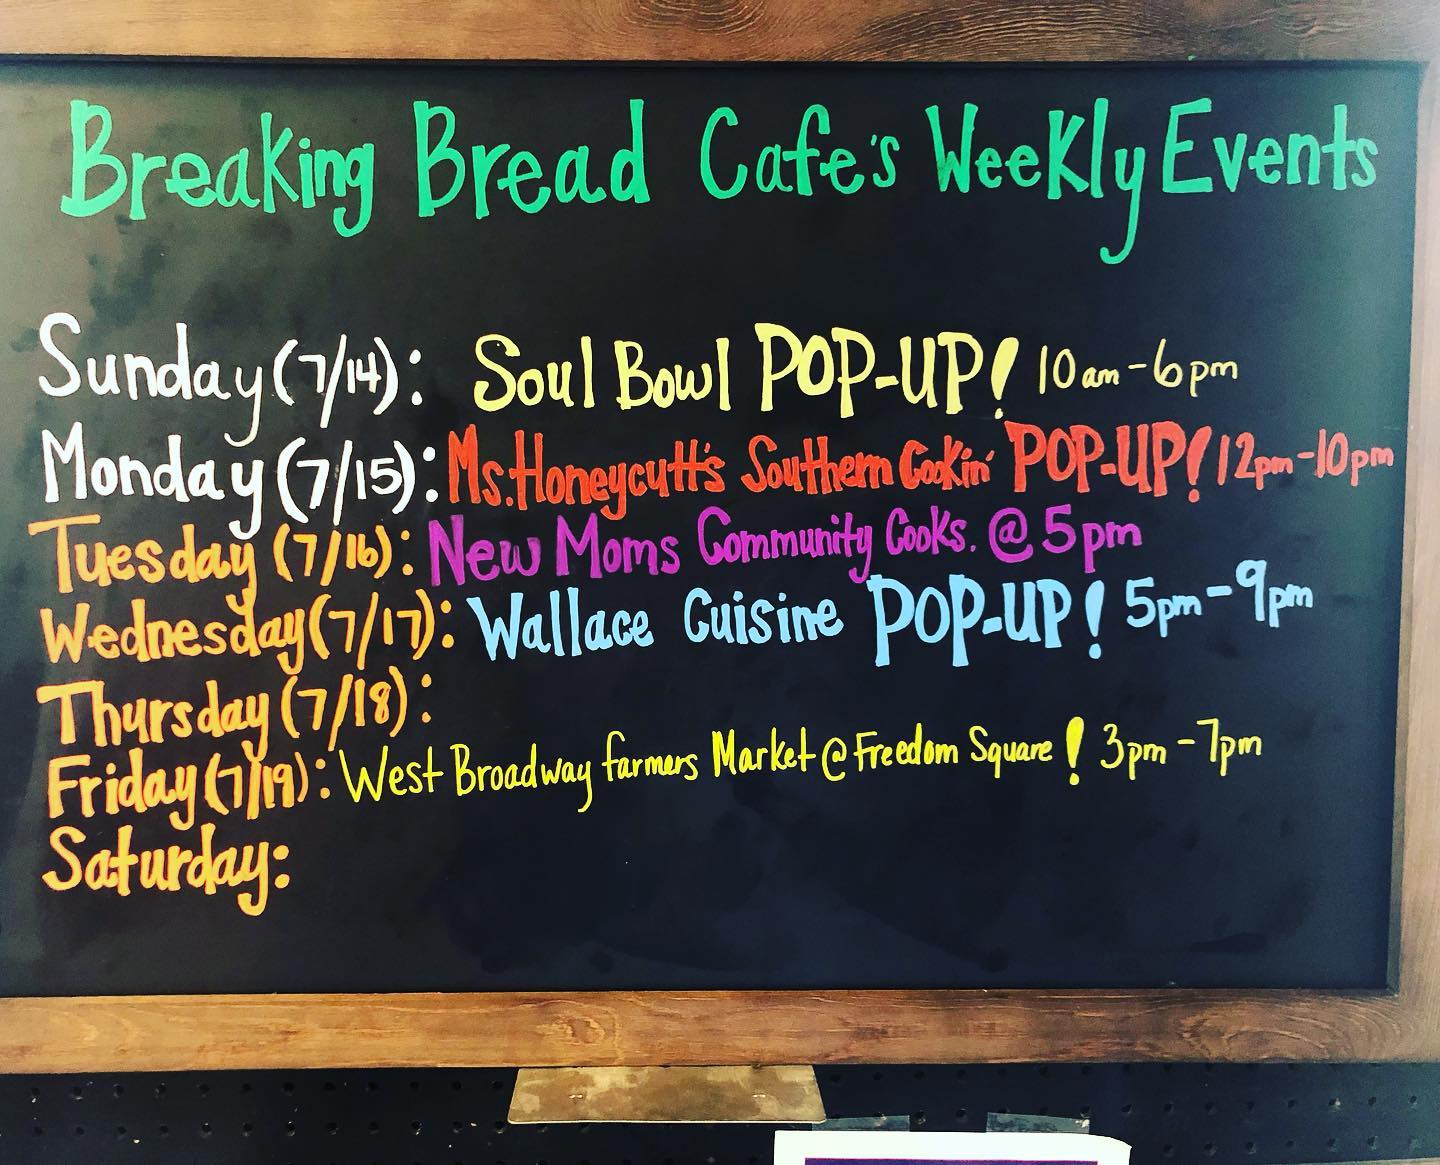 Breaking Bread Cafe's Weekly Events
Sunday (7/14): Soul Bowl POP-UP! 10am-6pm
Monday (7/15): Ms. Honeycutt's Southern Cookin' POP-UP! 12pm-10pm
Tuesday (7/16): New Moms Community Cooks. @ 5pm
Wednesday (7/17): Wallace Cuisine POP-UP! 5pm-9pm
Thursday (7/18):
Friday (7/19): West Broadway farmers Market @ Freedom Square! 3pm-7pm
Saturday: